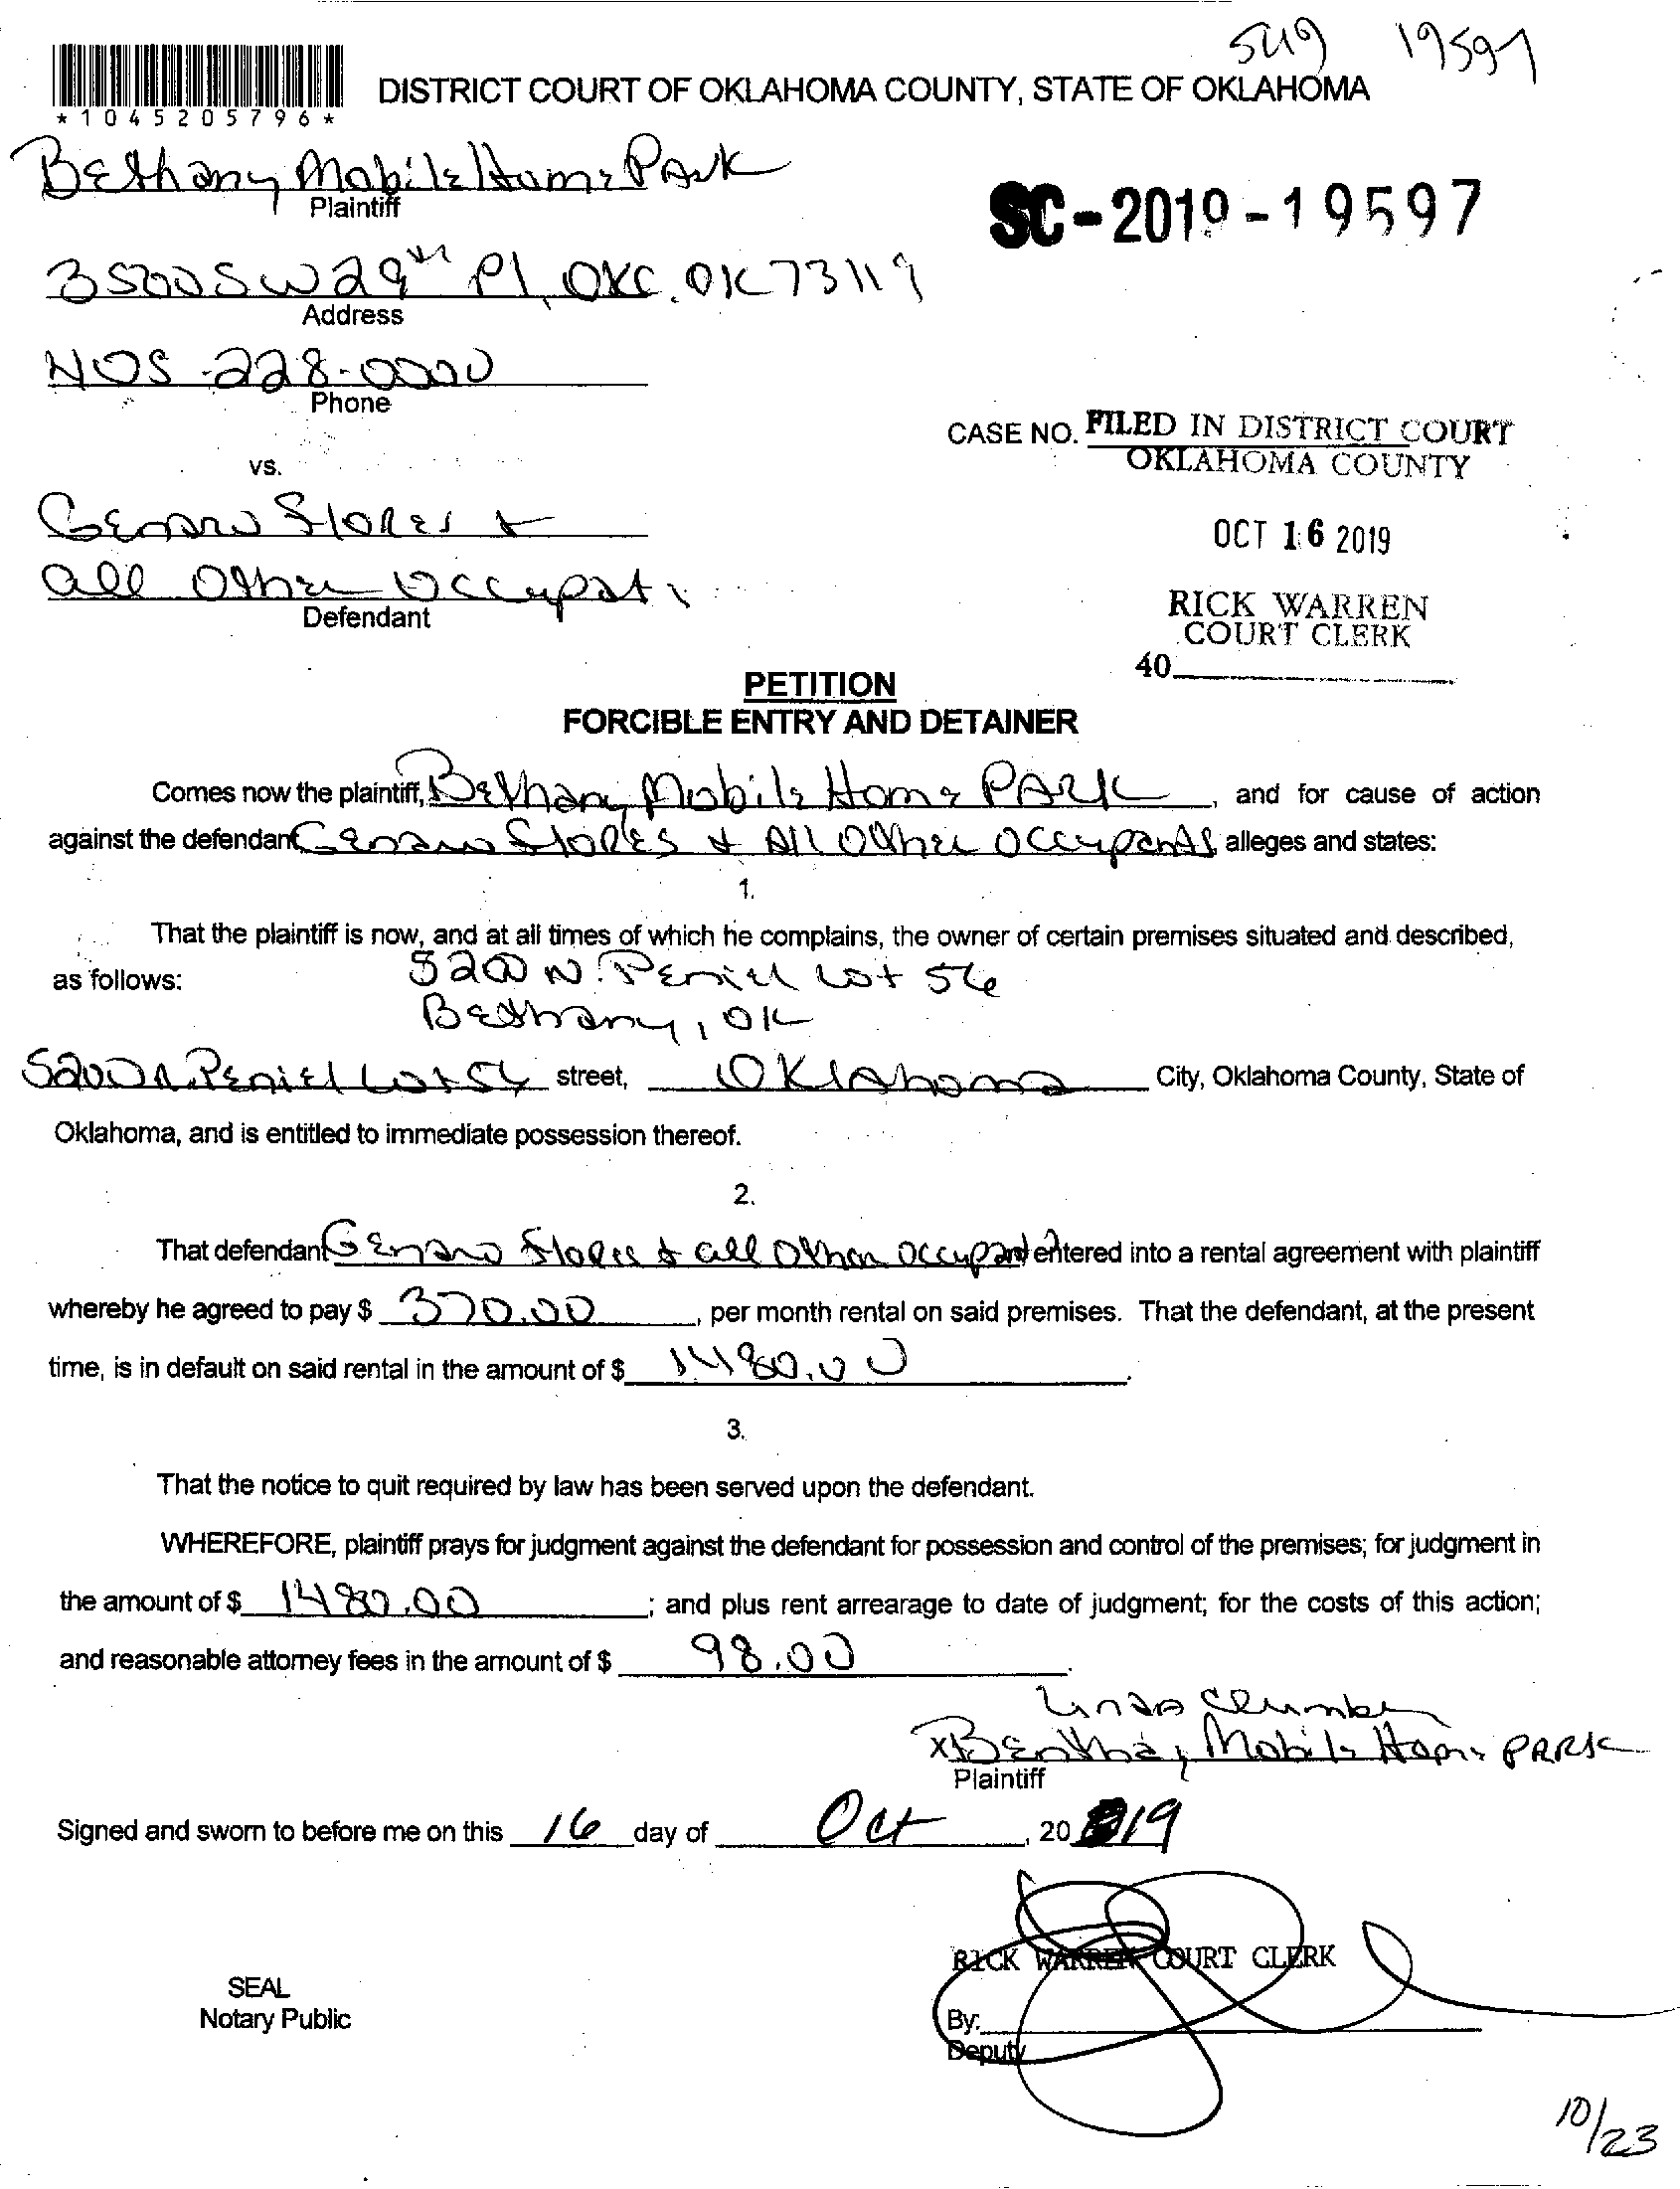 19597
DISTRICT COURT OF OKLAHOMA COUNTY, STATE OF OKLAHOMA
*1045205796*
Bethany Mobile Home Park
Plaintiff
SC-2019-19597
3500 SW 29th Pl, OKC, OK 73119
Address
405-228-0000
Phone
CASE NO. FILED IN DISTRICT COURT
OKLAHOMA COUNTY
vs.
Genaro Flores &
OCT 16 2019
all Other Occupat
Defendant
RICK WARREN
COURT CLERK
40
PETITION
FORCIBLE ENTRY AND DETAINER
Comes now the plaintiff, Bethany Mobile Home PARK, and for cause of action
against the defendant Genaro Flores & All Other Occupants alleges and states:
1.
That the plaintiff is now, and at all times of which he complains, the owner of certain premises situated and described,
as follows: 5200 N. Peniel Lot 56
Bethany, OK
5200 N. Peniel Lot 56 street, Oklahoma City, Oklahoma County, State of
Oklahoma, and is entitled to immediate possession thereof.
2.
That defendant Genaro Flores & all Other Occupant entered into a rental agreement with plaintiff
whereby he agreed to pay $ 370.00, per month rental on said premises. That the defendant, at the present
time, is in default on said rental in the amount of $ 1480.00.
3.
That the notice to quit required by law has been served upon the defendant.
WHEREFORE, plaintiff prays for judgment against the defendant for possession and control of the premises; for judgment in
the amount of $ 1480.00; and plus rent arrearage to date of judgment; for the costs of this action;
and reasonable attorney fees in the amount of $ 98.00.
Linda
x Bethany Mobile Home PARK
Plaintiff
Signed and sworn to before me on this 16 day of Oct, 2019
RICK WARREN COURT CLERK
SEAL
Notary Public
By:
Deputy
10/23